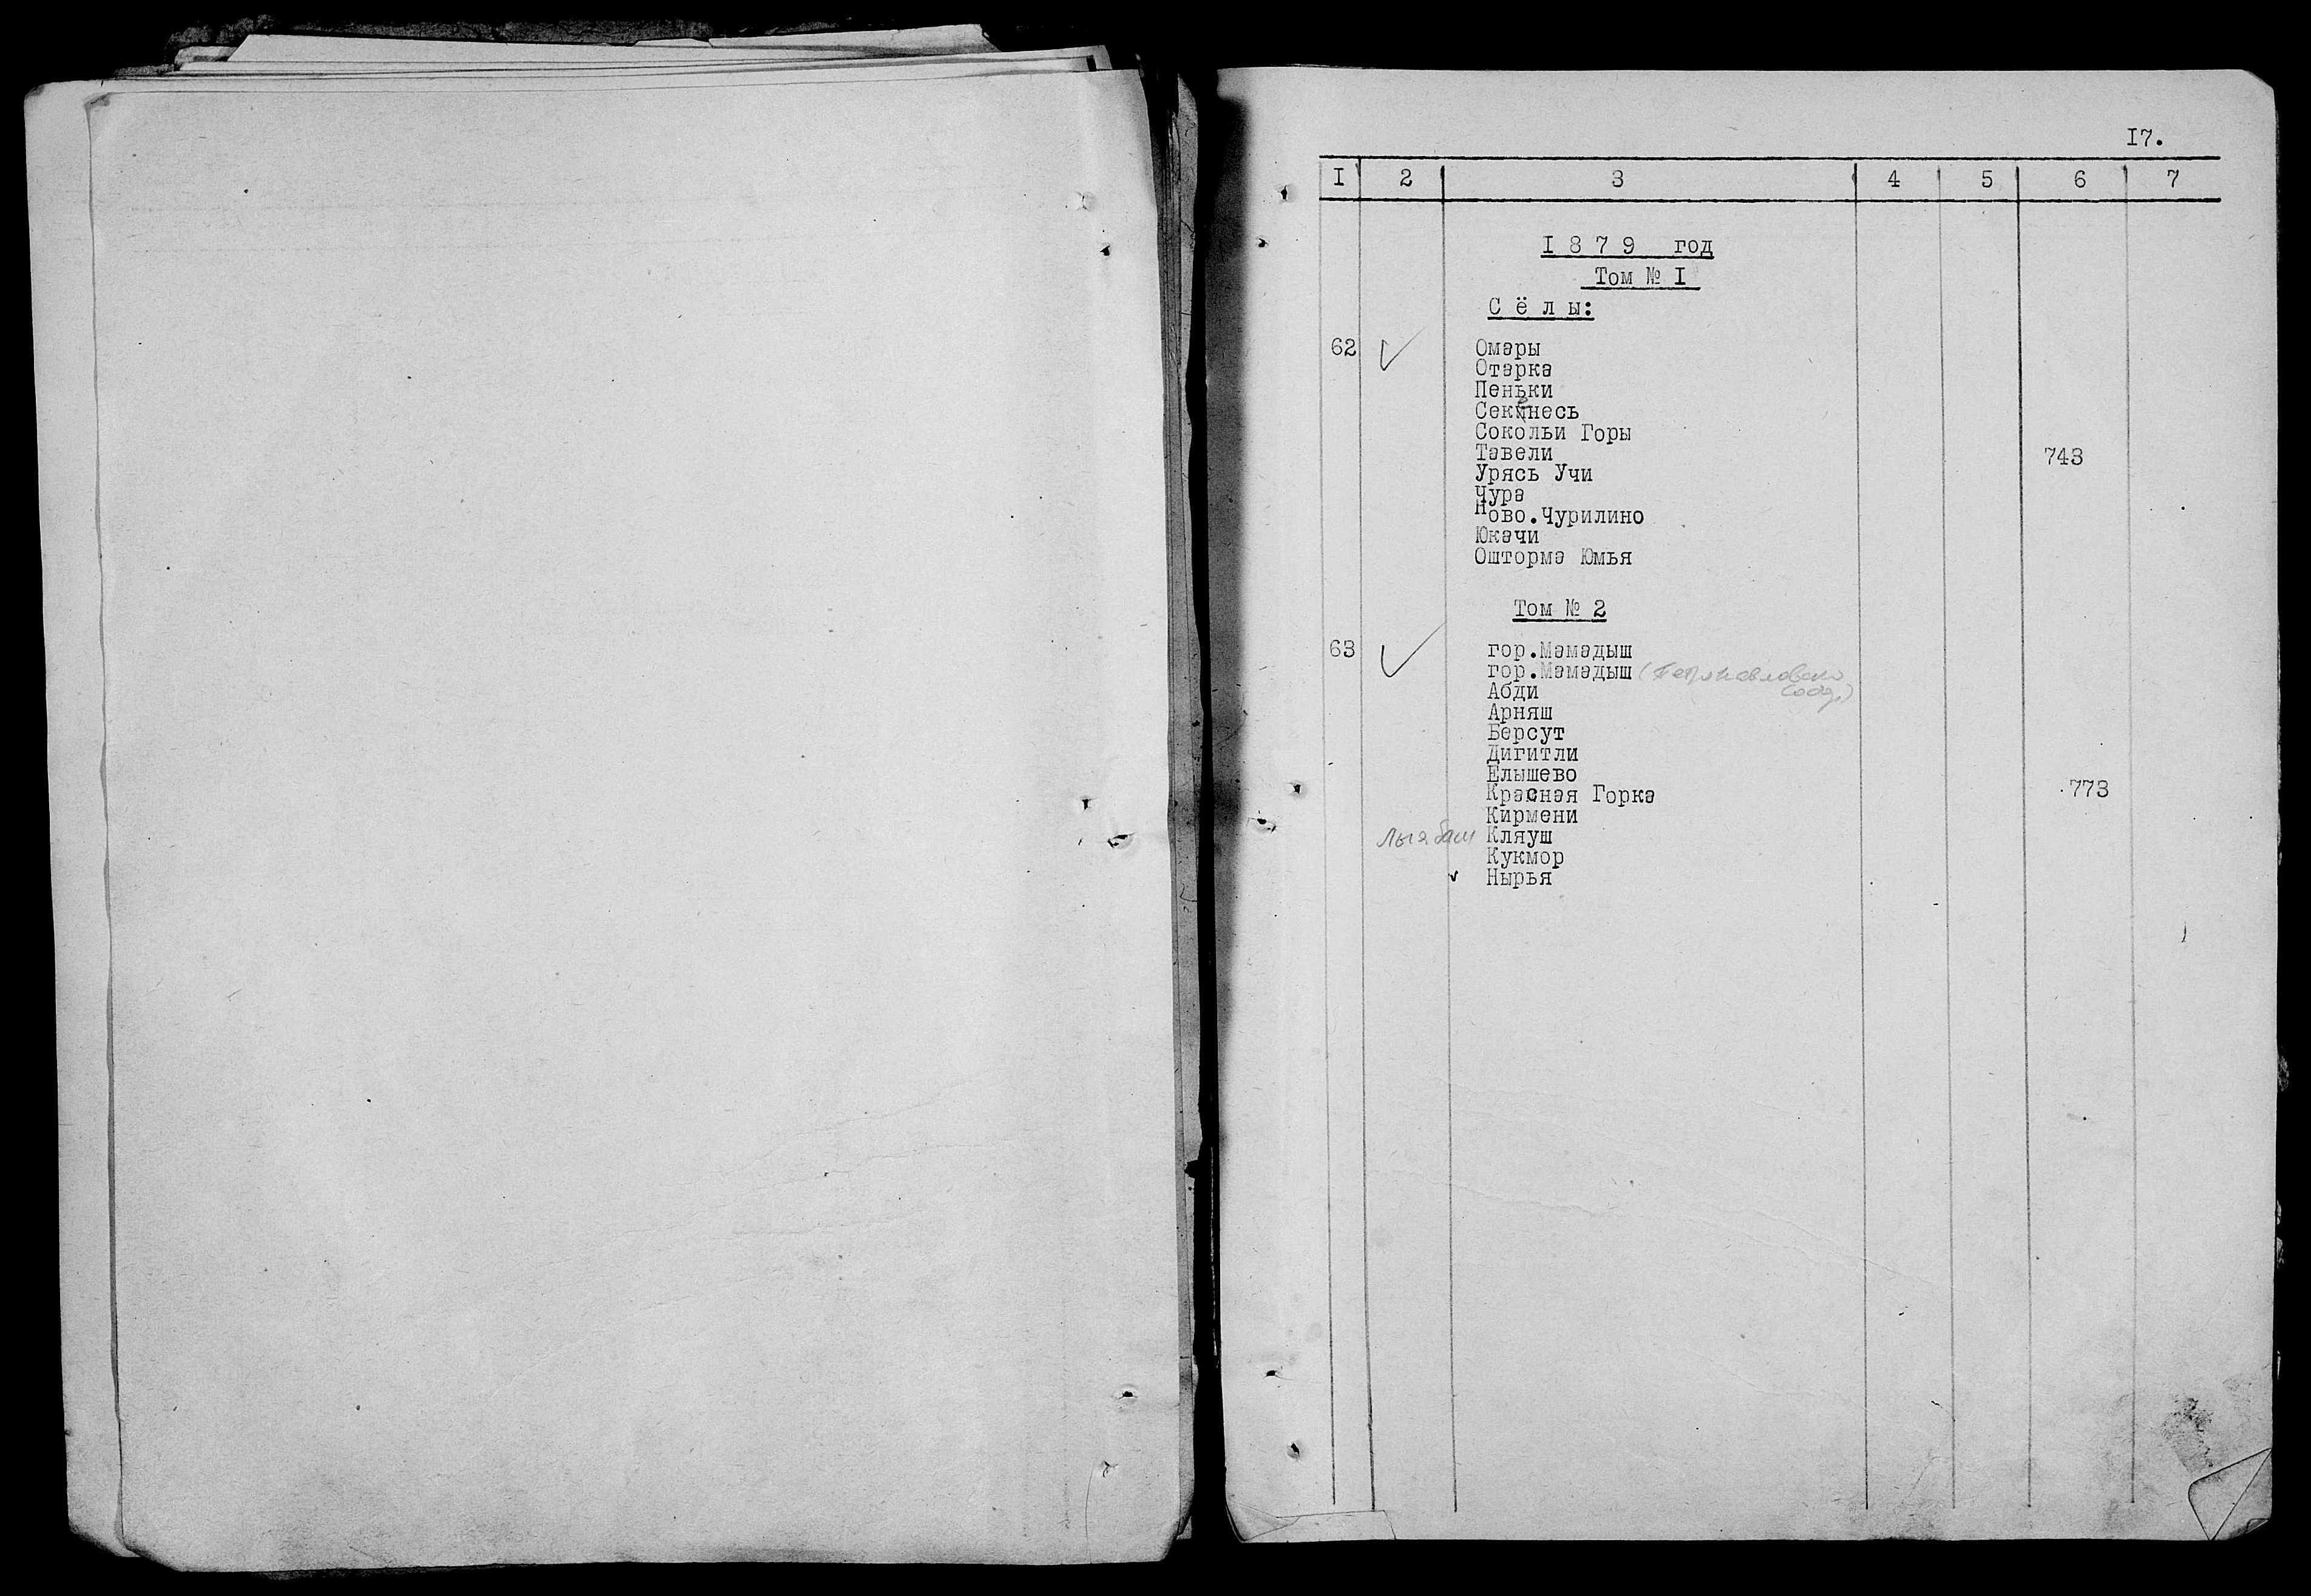 I7.
I 2 3 4 5 6 7
I 8 7 9 год
Том № I
С ё л ы:
62 Омары
Отарка
Пеньки
Секенесь
Сокольи Горы
Тавели 743
Урясь Учи
Чура
Ново.Чурилино
Юкачи
Ошторма Юмья
Том № 2
63 гор.Мамадыш
гор.Мамадыш (Петропавловский
собор)
Абди
Арняш
Берсут
Дигитли
Елышево
Красная Горка 773
Кирмени
Кляуш
Кукмор
Нырья